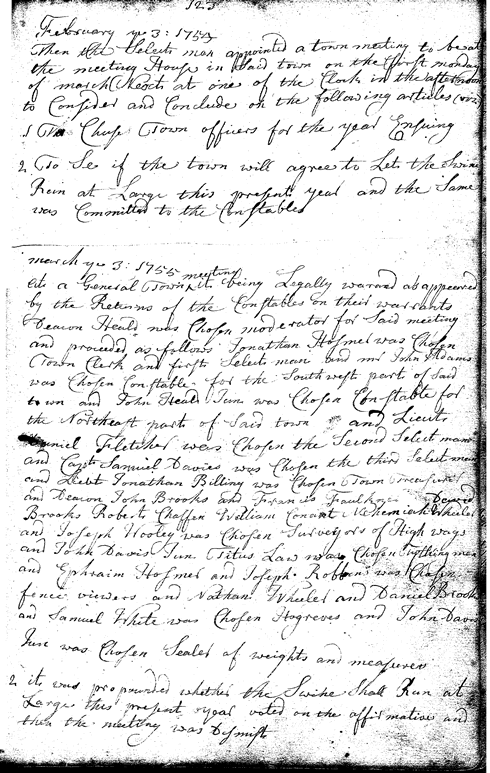 123
February ye 3: 1755
Then the Selects man appointed a town meeting to be at
the meeting House in Said town on the first monday
of march Next at one of the Clock in the afternoon
to Consider and Conclude on the following articles (viz)
1 To Chuse Town officers for the year Ensuing
2 To Se if the town will agree to Let the Swine
Run at Large this present year and the Same
was Committed to the Constables
march ye 3: 1755
At a General Town meeting it being Legally warned as appeared
by the Returns of the Constables on their warrants
Deacon Heald was Chosen moderator for Said meeting
and proceded as follows Jonathan Hosmer was Chosen
Town Clerk and first Selects man and mr John Adams
was Chosen Constable for the Southwest part of Said
town and John Heald Jun was Chosen Constable for
the Northeast part of Said town and Lieut
Daniel Fletcher was Chosen the Second Select man
and Capt Samuel Davies was Chosen the third Select man
and Lieut Jonathan Billing was Chosen Town treasurer
and Deacon John Brooks and Francis Faulkner
Brooks Robert Chaffen William Conant Nehemiah Wheeler
and Joseph Wooley was Chosen Surveyors of High ways
and John Davis Jun Titus Law was Chosen Tythingmen
and Ephraim Hosmer and Joseph Robbins was Chosen
fence viewers and Nathan Wheeler and Daniel Brooks
and Samuel White was Chosen Hogreves and John Davis
Jun was Chosen Sealer of weights and measures
2 it was propounded whether the Swine Shall Run at
Large this present year voted on the affirmative and
then the meeting was Dismist